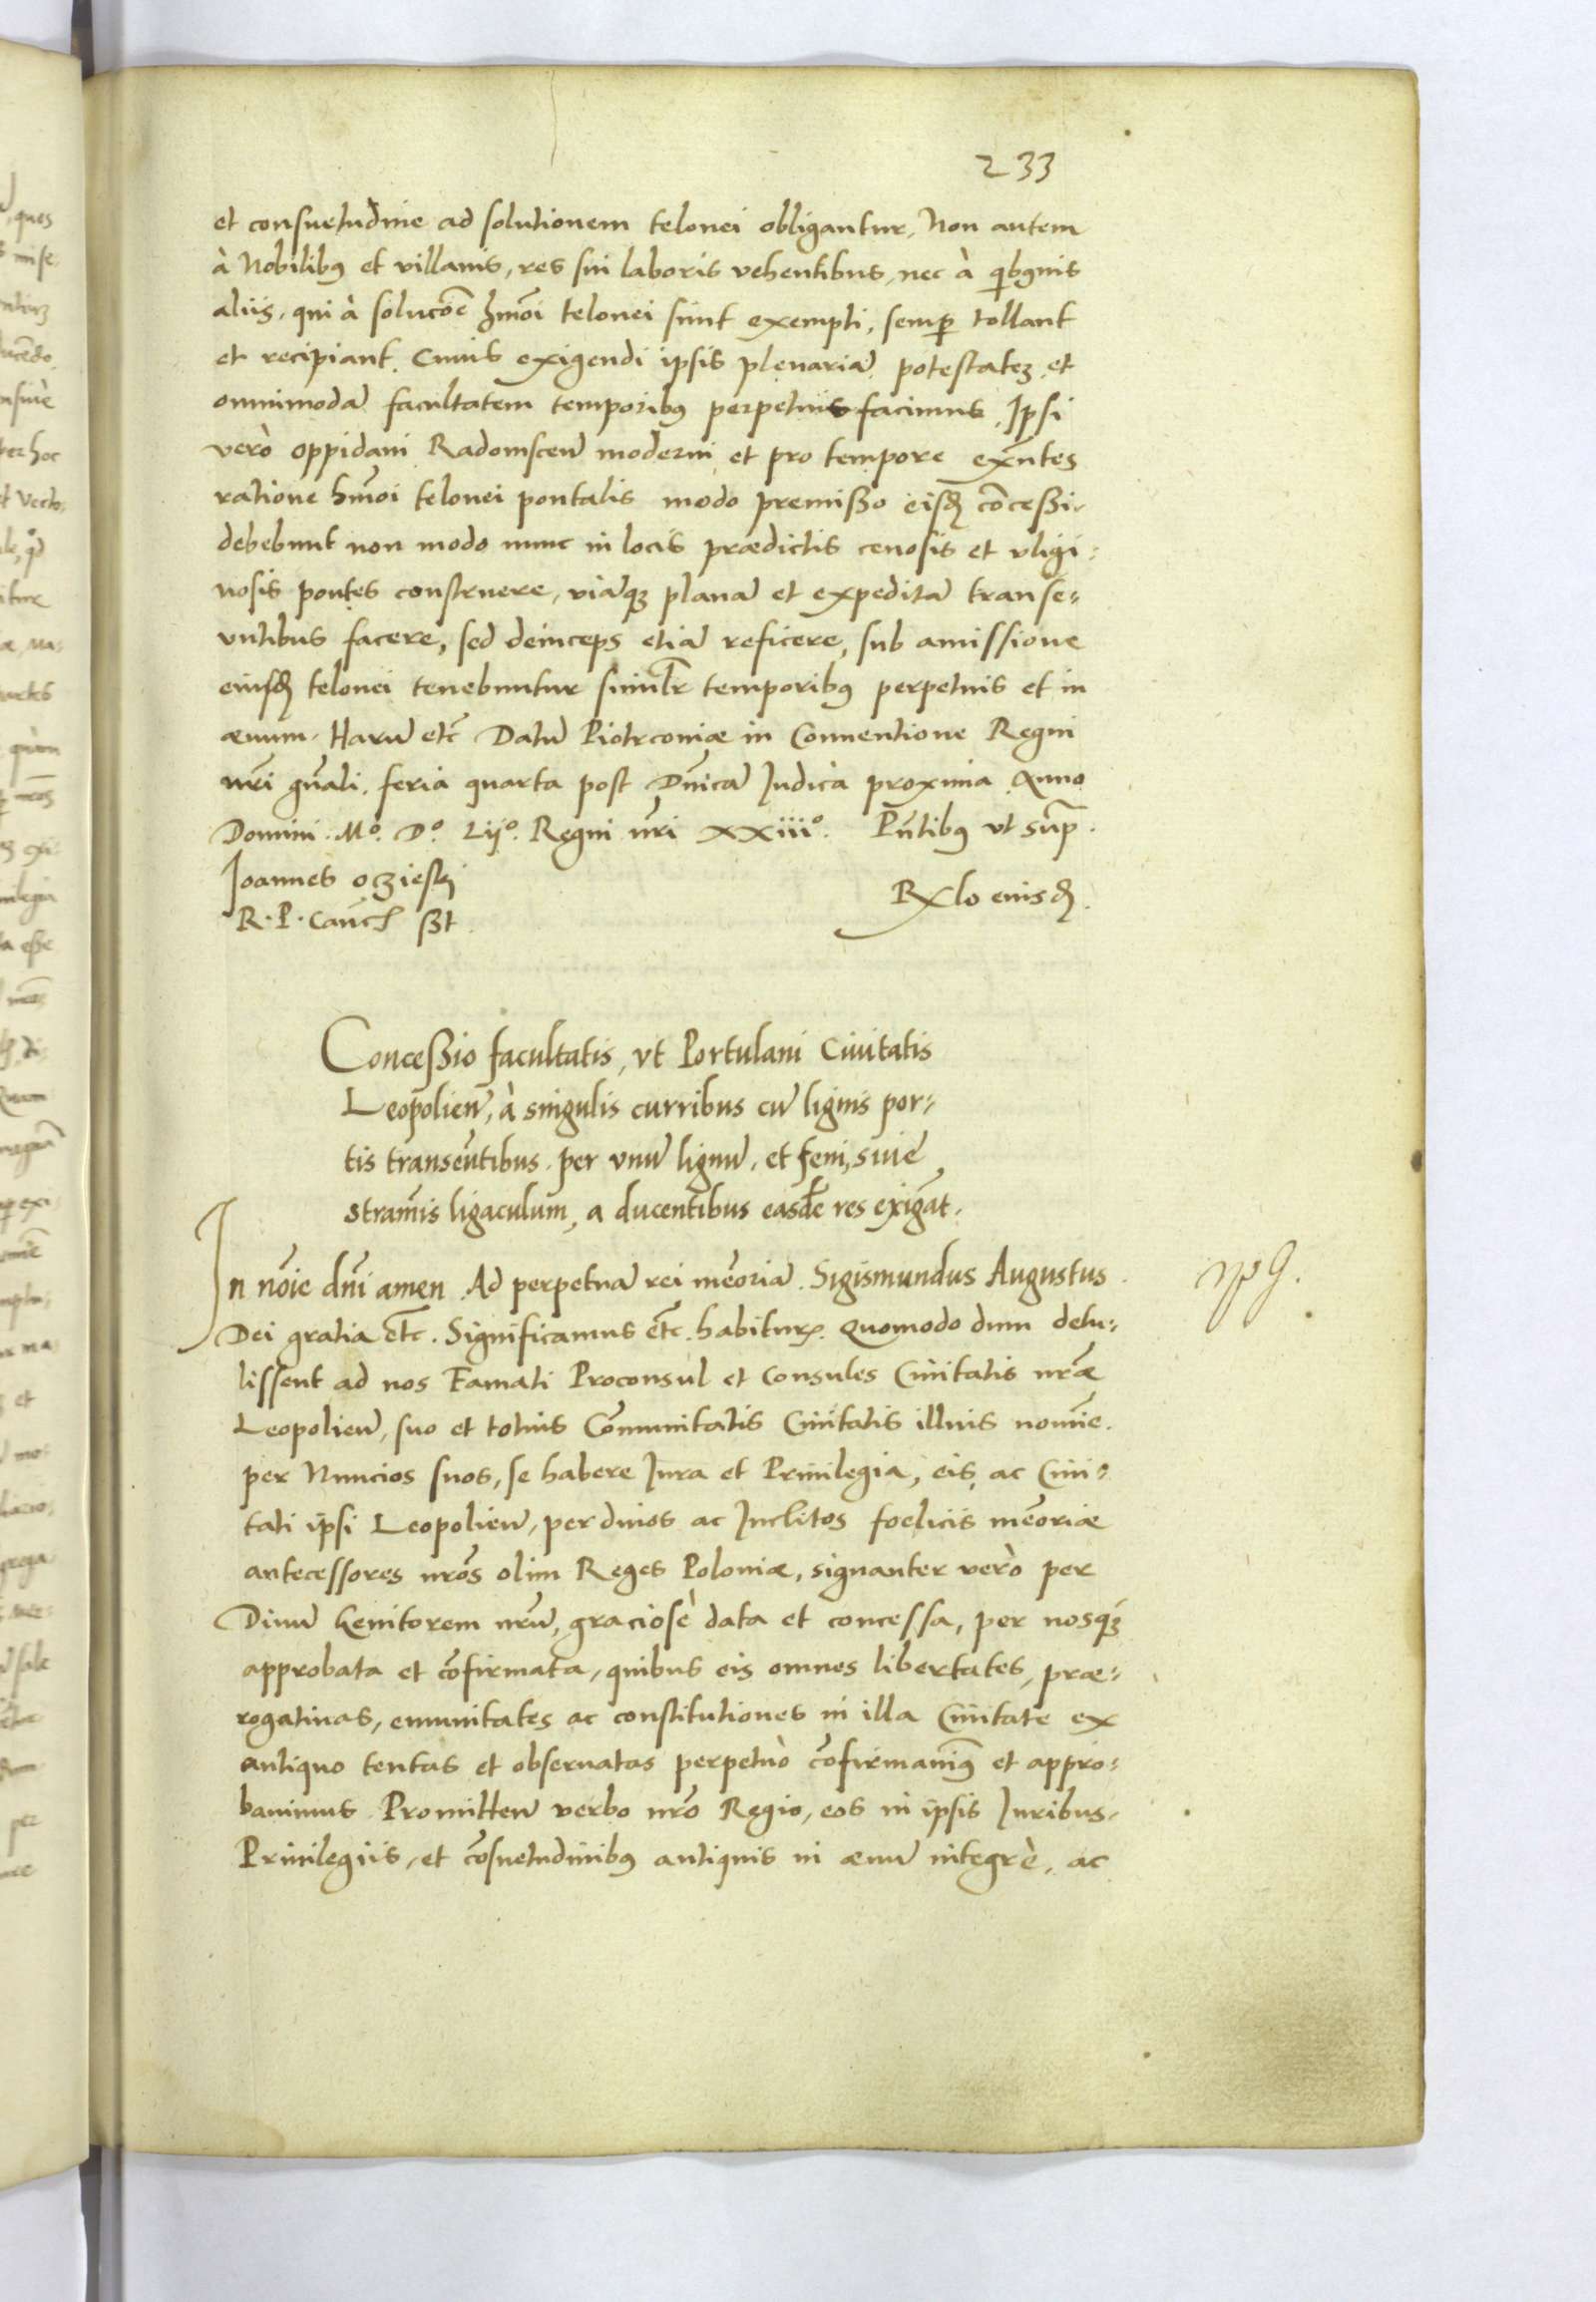 233
et consuetudine ad solutionem telonei obligantur, Non autem
à Nobilibꝰ et villanis, res sui laboris vehentibus, nec à qͥbꝰuis
aliis, qui à solucōe hmōi telonei sunt exempti, semꝑ tollant
et recipiant. Cuius exigendi ipsis plenariā potestatēꝫ et
omnimodā facultatem temporibꝰ perpetuis facimus, Ipsi
verò oppidani Radomscen̄ moderni et pro tempore exn̄tes
ratione hmōi telonei pontalis modo premisso eisd̄ cōcessi,
debebunt non modo nunc in locis prædictis cenosis et vligi:
nosis pontes construere, viāqꝫ planā et expeditā transe,
untibus facere, sed deinceps etiā reficere, sub amissione
eiusd̄ telonei tenebuntur simlr̄ temporibꝰ perpetuis et in
æuum. Harū etc̄ Datū Piotrconiæ in Conuentione Regni
nr̄i gn̄ali, feria quarta post Dn̄icā Iudica proxima Anno
Domini Mº. Dº. Lijº. Regni nr̄i xxiiiº. Pn̄tibꝰ vt suꝑ.
Ioannes oczieski
R. P. Canc̄ sst
Rx̄lo eiusd̄.
Concessio facultatis, vt Portulani Ciuitatis
Leopolien̄, à singulis curribus cū lignis por,
tis transeūtibus, per vnū lignū, et feni, siue
stramīs ligaculum, a ducentibus easdē res exigāt.
In nōie dn̄i amen. Ad perpetuā rei mēoriā. Sigismundus Augustus
Dei gratia etc̄. Significamus etc̄. habiturꝫ. Quomodo dum detu,
lissent ad nos Famati Proconsul et Consules Ciuitatis nr̄æ
Leopolien̄, suo et totius Cōmunitatis Ciuitatis illius nomīe
per Nuncios suos, se habere Iura et Priuilegia, eis ac Ciui,
tati ipsi Leopolien̄, per diuos ac Inclitos foelicis mēoriæ
antecessores nr̄os olim Reges Poloniæ, signanter verò per
Diuū Genitorem nr̄ū, graciosè data et concessa, per nosqꝫ
approbata et cōfirmata, quibus eis omnes libertates, præ,
rogatiuas, emunitates ac constitutiones in illa Ciuitate ex
antiquo tentas et obseruatas perpetuò cōfirmauimꝰ et appro,
bauimus Promitten̄ verbo nr̄o Regio, eos in ipsis Iuribus,
Priuilegiis, et cōsuetudinibꝰ antiquis in æuū integrè, ac